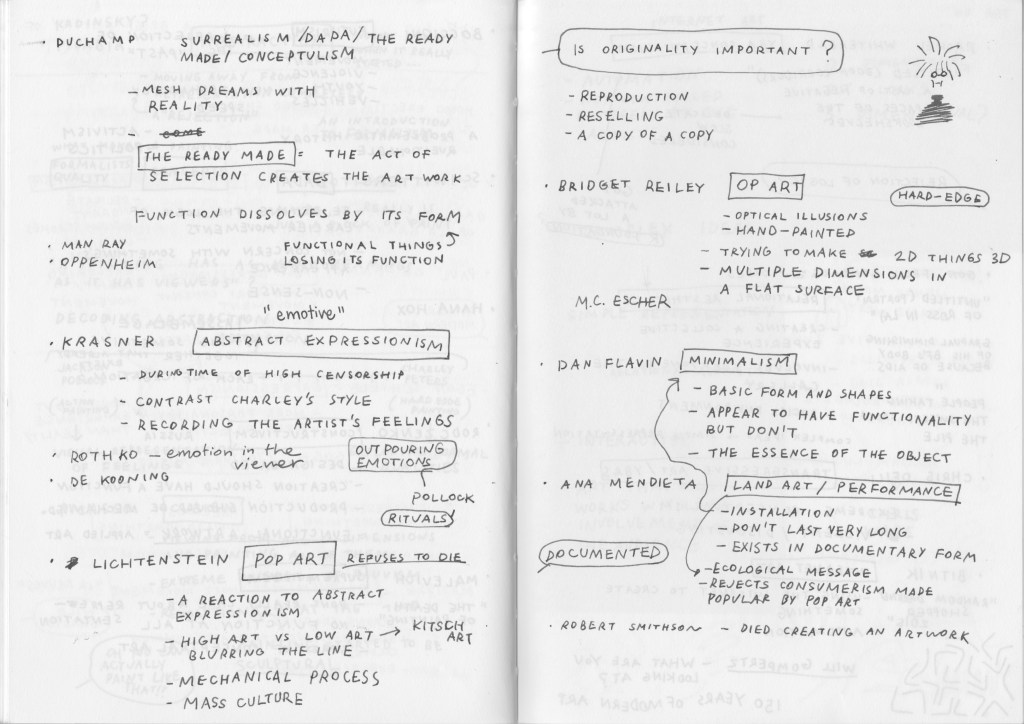 DUCHAMP SURREALISM/DADA/THE READY
MADE/CONCEPTULISM
- MESH DREAMS WITH
REALITY
-
THE READY MADE = THE ACT OF
SELECTION CREATES THE ARTWORK
FUNCTION DISSOLVES BY ITS FORM
FUNCTIONAL THINGS
LOSING ITS FUNCTION
• MAN RAY
• OPPENHEIM
"emotive"
• KRASNER ABSTRACT EXPRESSIONISM
- DURING TIME OF HIGH CENSORSHIP
- CONTRAST CHARLEY'S STYLE
- RECORDING THE ARTIST'S FEELINGS
• ROTHKO - emotion in the
viewer
• DE KOONING
OUTPOURING
EMOTIONS
POLLOCK
RITUALS
• LICHTENSTEIN POP ART REFUSES TO DIE
- A REACTION TO ABSTRACT
EXPRESSIONISM
- HIGH ART VS LOW ART → KITSCH
BLURRING THE LINE ART
- MECHANICAL PROCESS
- MASS CULTURE
IS ORIGINALITY IMPORTANT?
- REPRODUCTION
- RESELLING
- A COPY OF A COPY
• BRIDGET REILEY OP ART
HARD-EDGE
- OPTICAL ILLUSIONS
- HAND-PAINTED
- TRYING TO MAKE 2D THINGS 3D
- MULTIPLE DIMENSIONS IN
A FLAT SURFACE
M.C. ESCHER
• DAN FLAVIN MINIMALISM
- BASIC FORM AND SHAPES
- APPEAR TO HAVE FUNCTIONALITY
BUT DON'T
- THE ESSENCE OF THE OBJECT
• ANA MENDIETA LAND ART / PERFORMANCE
- INSTALLATION
- DON'T LAST VERY LONG
- EXISTS IN DOCUMENTARY FORM
DOCUMENTED
- ECOLOGICAL MESSAGE
- REJECTS CONSUMERISM MADE
POPULAR BY POP ART
• ROBERT SMITHSON - DIED CREATING AN ARTWORK